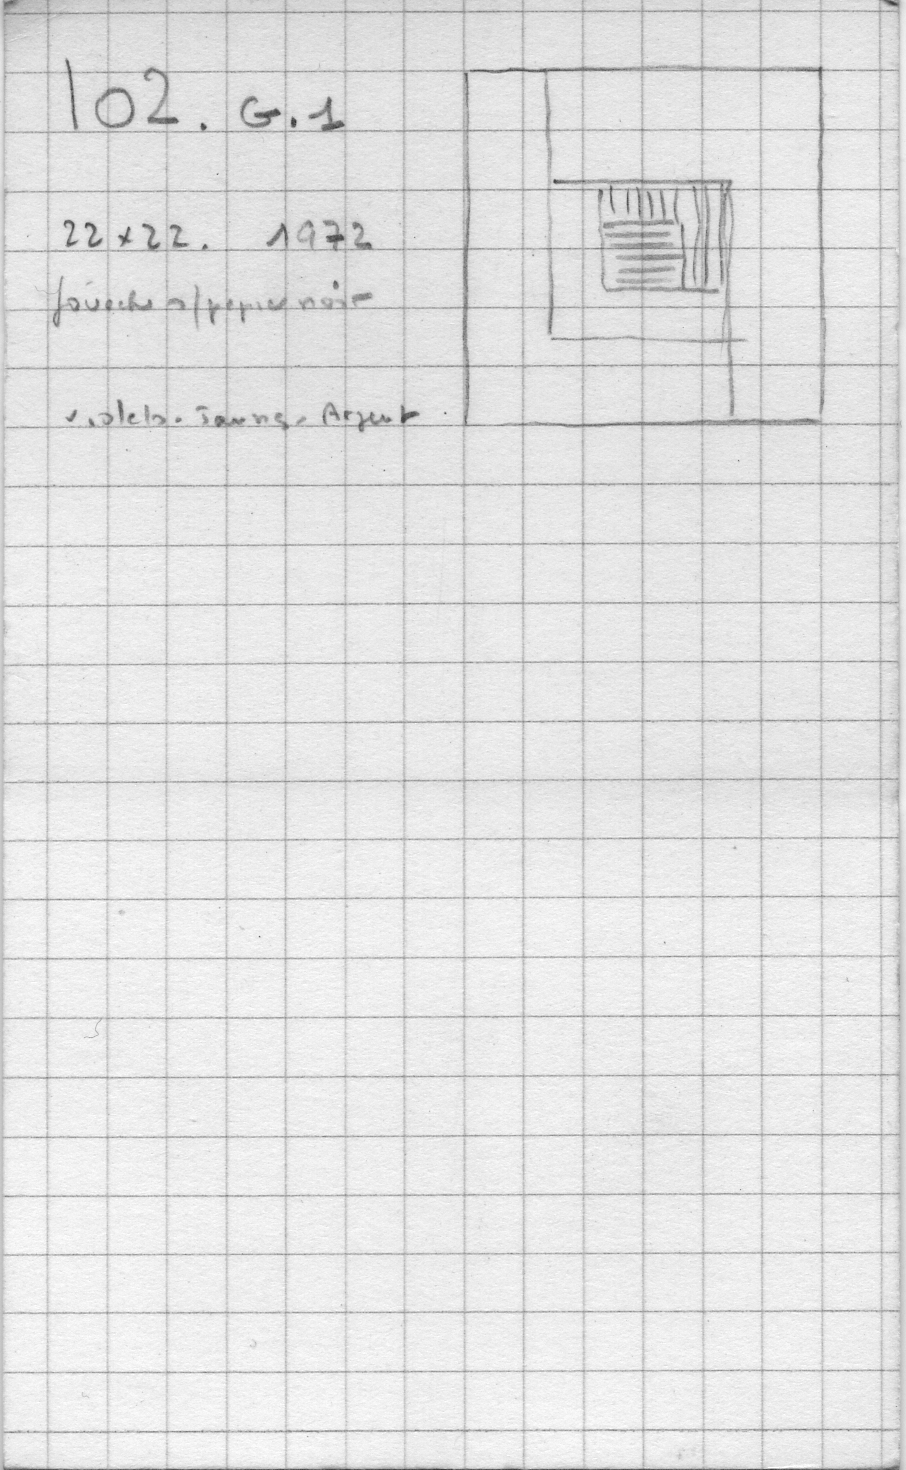 102. G.1
22 x 22. 1972
gouache s/papier noir
violets. Jaune. Argent